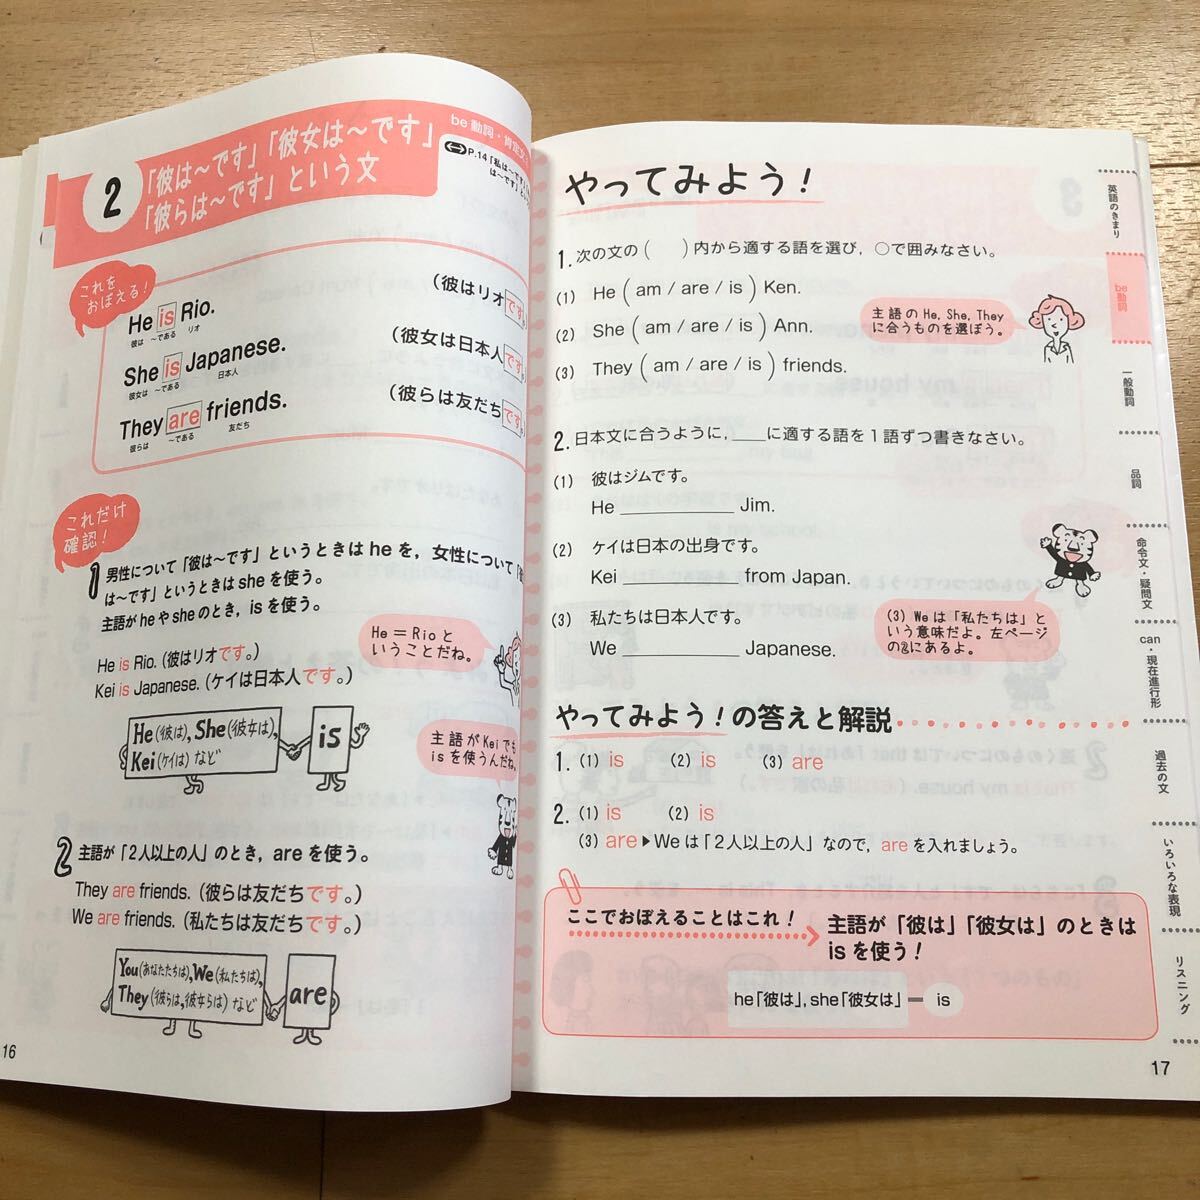 2
「彼は～です」「彼女は～です」
「彼らは～です」という文
be動詞・肯定文
P.14「私は～です」
は～です」とい
これを
おぼえる！
He is Rio.
彼は ～である リオ
（彼はリオです。）
She is Japanese.
彼女は ～である 日本人
（彼女は日本人です。）
They are friends.
彼らは ～である 友だち
（彼らは友だちです。）
これだけ
確認！
1 男性について「彼は～です」というときは he を，女性について「彼
は～です」というときは she を使う。
主語が he や she のとき，is を使う。
He is Rio.（彼はリオです。）
Kei is Japanese.（ケイは日本人です。）
He＝Rio と
いうことだね。
He(彼は), She(彼女は),
Kei(ケイは) など
is
主語が Kei でも
is を使うんだね。
2 主語が「2人以上の人」のとき，are を使う。
They are friends.（彼らは友だちです。）
We are friends.（私たちは友だちです。）
You(あなたたちは), We(私たちは),
They(彼らは, 彼女らは) など
are
16
やってみよう！
1. 次の文の（　　）内から適する語を選び，○で囲みなさい。
(1) He ( am / are / is ) Ken.
(2) She ( am / are / is ) Ann.
(3) They ( am / are / is ) friends.
主語の He, She, They
に合うものを選ぼう。
2. 日本文に合うように，____に適する語を１語ずつ書きなさい。
(1) 彼はジムです。
He __________ Jim.
(2) ケイは日本の出身です。
Kei __________ from Japan.
(3) 私たちは日本人です。
We __________ Japanese.
(3) We は「私たちは」と
いう意味だよ。左ページ
の2にあるよ。
やってみよう！の答えと解説
1. (1) is (2) is (3) are
2. (1) is (2) is
(3) are ▶ We は「2人以上の人」なので，are を入れましょう。
ここでおぼえることはこれ！
主語が「彼は」「彼女は」のときは
is を使う！
he「彼は」, she「彼女は」— is
17
英語のきまり
be動詞
一般動詞
品詞
命令文・疑問文
can・現在進行形
過去の文
いろいろな表現
リスニング